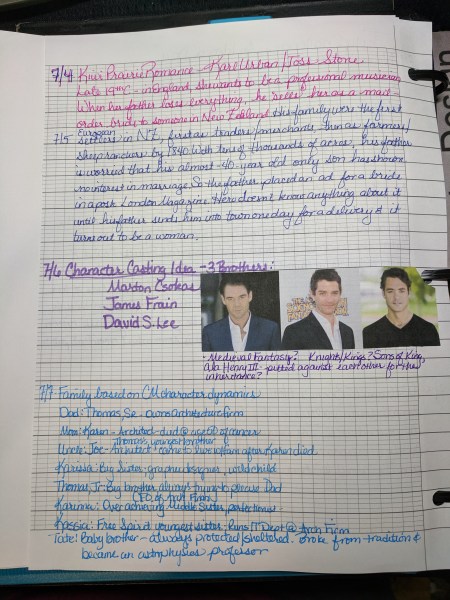 7/4 Kiwi Prairie Romance - Karl Urban / Joss Stone
Late 19th C - in England, she wants to be a professional musician.
When her father loses everything, he "sells" her as a mail-
order bride to someone in New Zealand. His family were the first
European
7/5 settlers in NZ, first as traders/merchants, then as farmers/
sheep ranchers by 1840 with tens of thousands of acres, his father
is worried that his almost-40 year old only son has shown
no interest in marriage. So the father placed an ad for a bride
in a posh London Magazine. Hero doesn't know anything about it
until his father sends him into town one day for a delivery & it
turns out to be a woman.
7/6 Character Casting Idea - 3 Brothers:
Marton Csokas
James Frain
David S. Lee
- Medieval Fantasy? Knights/Kings? Sons of King,
ala Henry III - pitted against each other for the
inheritance?
7/7 Family based on CM character dynamics
Dad: Thomas, Sr. - owns architecture firm
Mom: Karen - Architect - died @ age 60 of cancer
Thomas's youngest brother
Uncle: Joe - Architect came to live w/ fam after Karen died.
Karissa: Big Sister - graphic designer, wild child
Thomas Jr: Big brother always trying to please Dad
(CFO of Arch Firm)
Karina: Over achieving middle sister perfectionist
Kassia: Free Spirit youngest sister. Runs IT Dept @ arch firm
Tate: Baby brother - always protected/sheltered. broke from tradition &
became an astrophysics professor